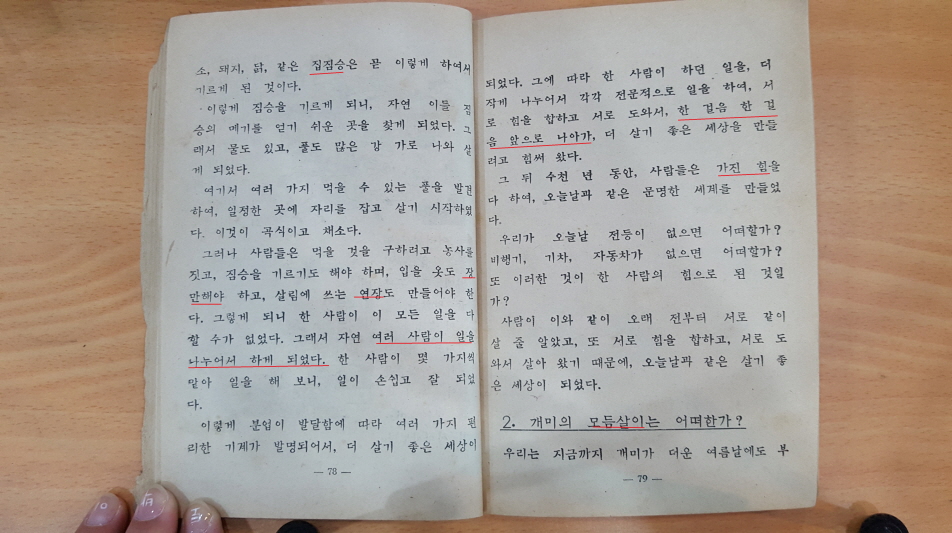 소, 돼지, 닭, 같은 집짐승은 모두 이렇게 하여서
기르게 된 것이다.
이렇게 짐승을 기르게 되니, 자연 이들 짐
승의 먹기를 얻기 쉬운 곳을 찾게 되었다. 그
래서 물도 있고, 풀도 많은 강 가로 나와 살
게 되었다.
여기서 여러 가지 먹을 수 있는 풀을 발견
하여, 일정한 곳에 자리를 잡고 살기 시작하였
다. 이것이 곡식이고 채소다.
그러나 사람들은 먹을 것을 구하려고 농사를
짓고, 짐승을 기르기도 해야 하며, 입을 옷도 장
만해야 하고, 살림에 쓰는 연장도 만들어야 한
다. 그렇게 되니 한 사람이 이 모든 일을 다
할 수가 없었다. 그래서 자연 여러 사람이 일을
나누어서 하게 되었다. 한 사람이 몇 가지씩
맡아 일을 해 보니, 일이 손쉽고 잘 되었
다.
이렇게 분업이 발달함에 따라 여러 가지 편
리한 기계가 발명되어서, 더 살기 좋은 세상이
— 78 —
되었다. 그에 따라 한 사람이 하던 일을, 더
작게 나누어서 각각 전문적으로 일을 하여, 서
로 힘을 합하고 서로 도와서, 한 걸음 한 걸
음 앞으로 나아가, 더 살기 좋은 세상을 만들
려고 힘써 왔다.
그 뒤 수천 년 동안, 사람들은 가진 힘을
다 하여, 오늘날과 같은 문명한 세계를 만들었
다.
우리가 오늘날 전등이 없으면 어떠할가?
비행기, 기차, 자동차가 없으면 어떠할가?
또 이러한 것이 한 사람의 힘으로 된 것일
가?
사람이 이와 같이 오래 전부터 서로 같이
살 줄 알았고, 또 서로 힘을 합하고, 서로 도
와서 살아 왔기 때문에, 오늘날과 같은 살기 좋
은 세상이 되었다.
2. 개미의 모듬살이는 어떠한가?
우리는 지금까지 개미가 더운 여름날에도 부
— 79 —